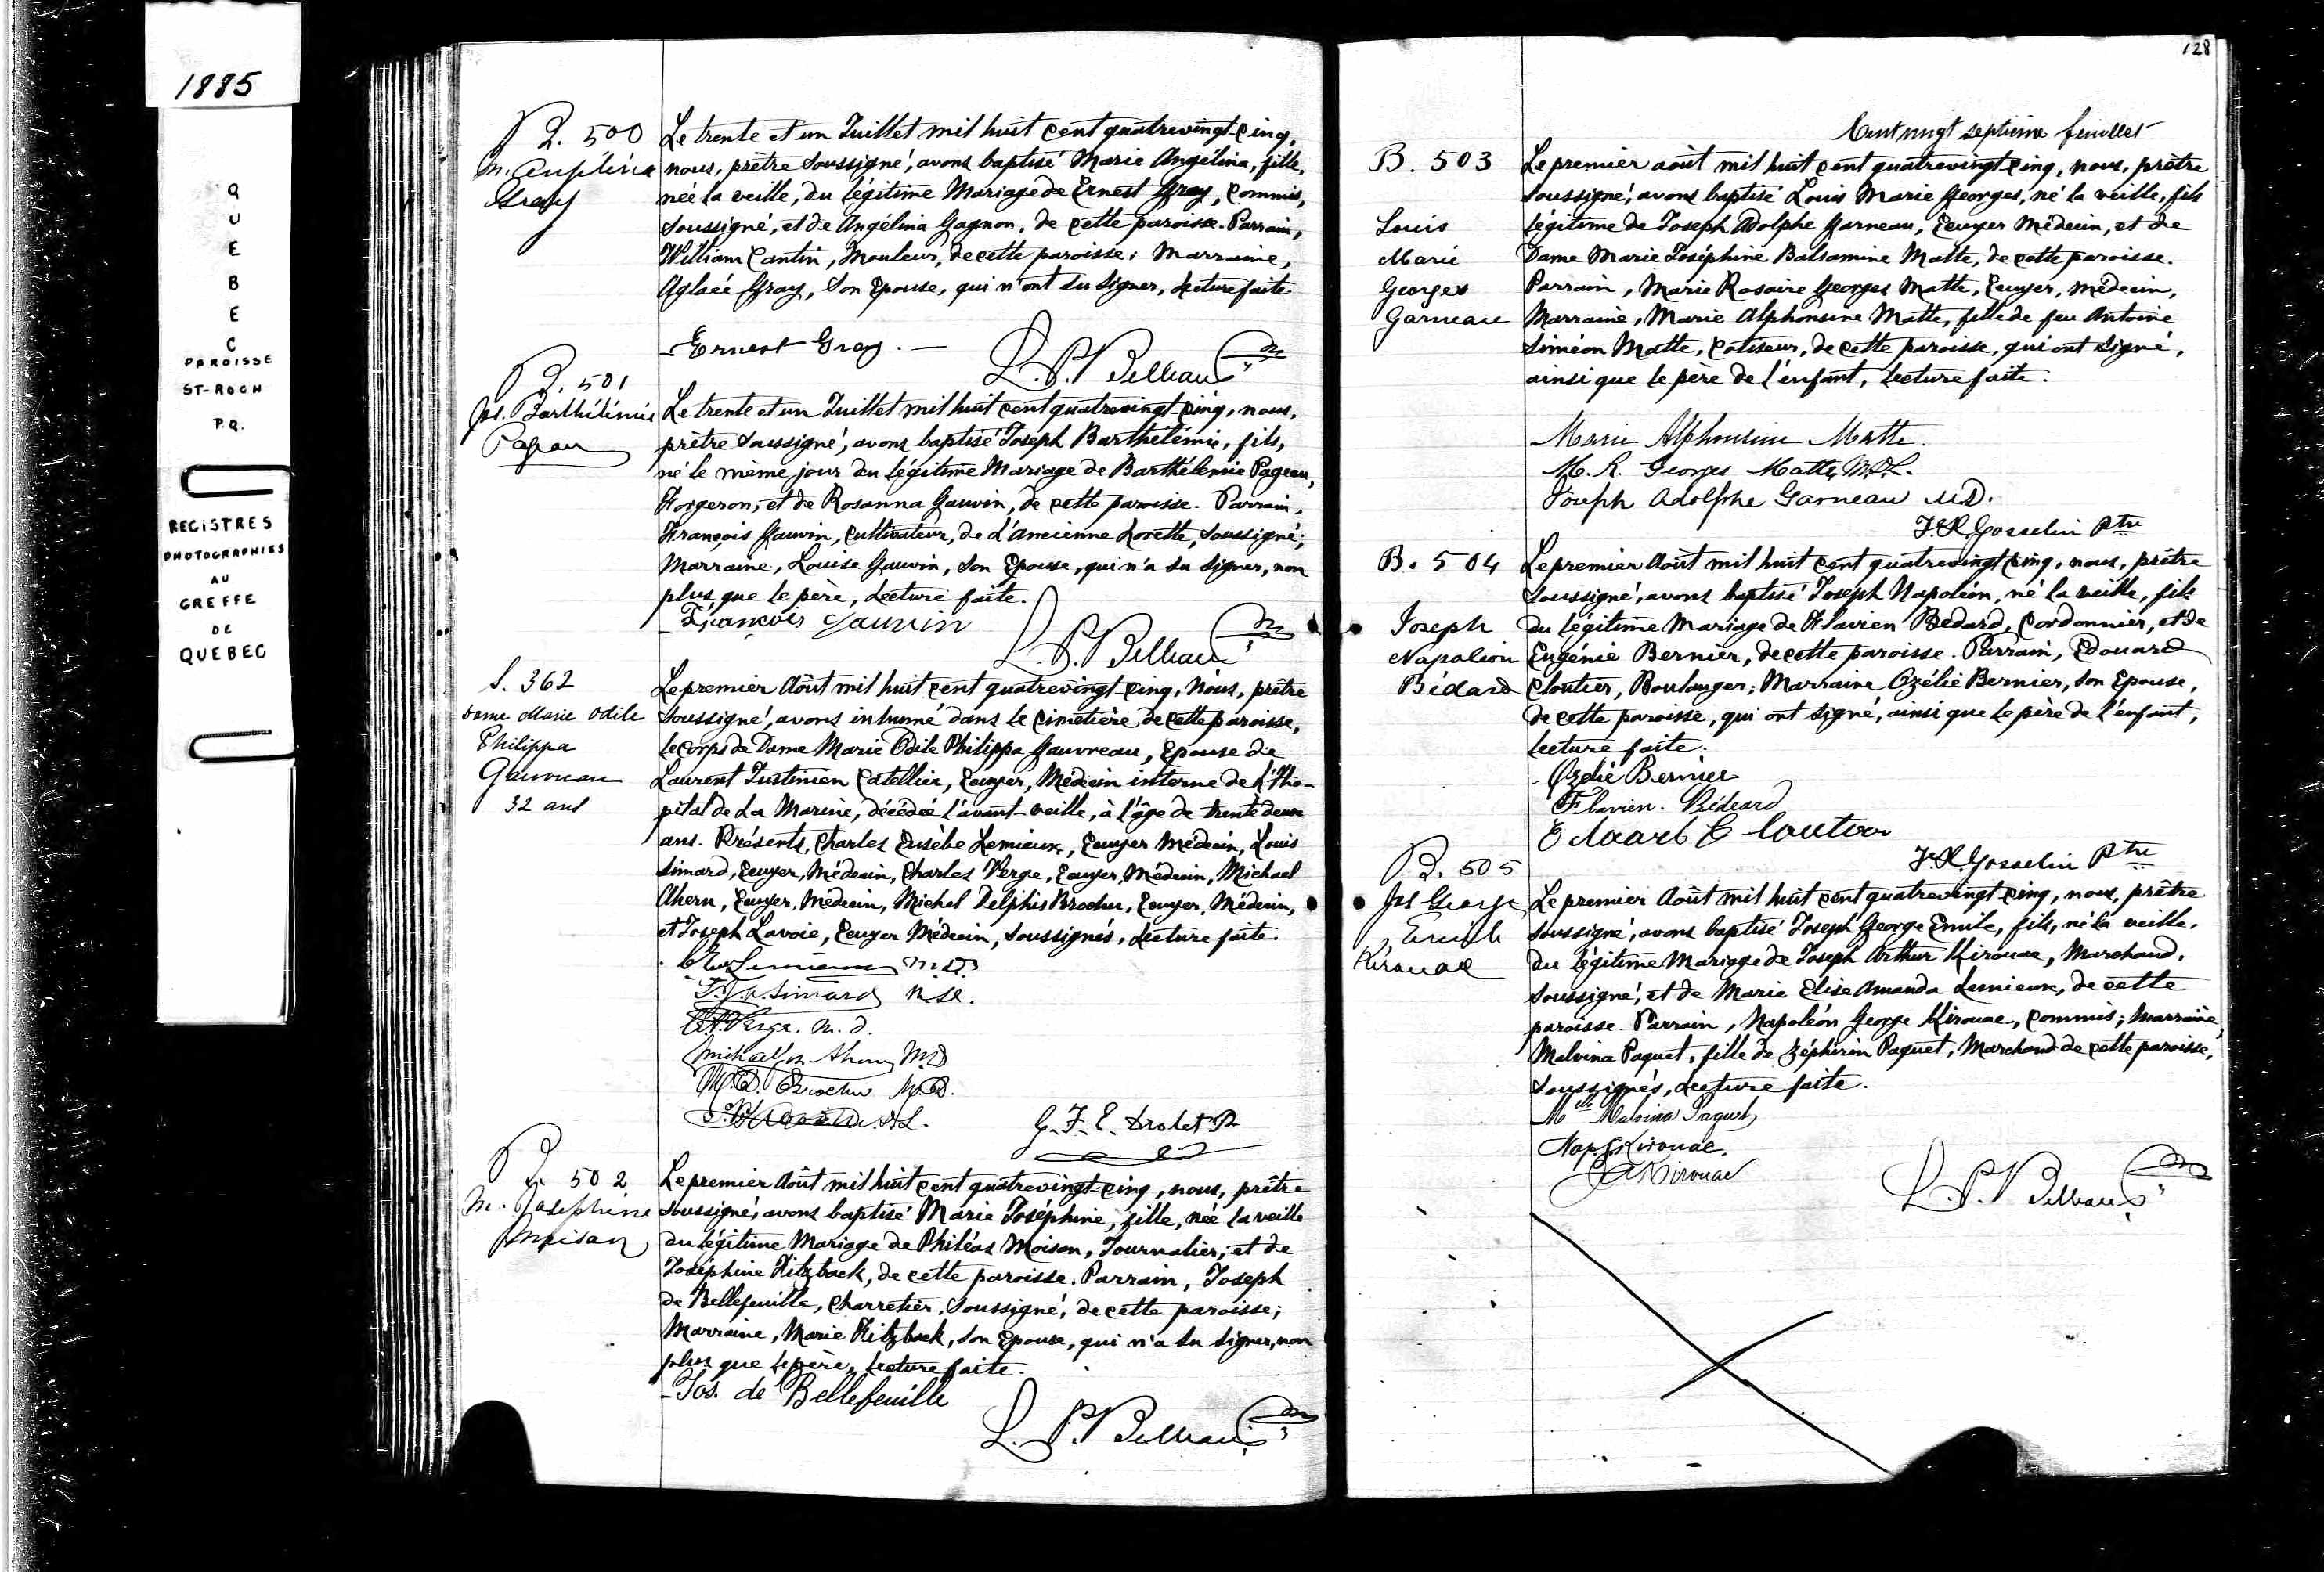 1885
QUEBEC
PAROISSE
ST-ROCH
P.Q.
REGISTRES
PHOTOGRAPHIES
AU
GREFFE
DE
QUEBEC
B. 500
M. Angelina
Gray
Le trente et un Juillet mil huit cent quatrevingt-cinq,
nous, prêtre soussigné, avons baptisé Marie Angélina, fille,
née la veille, du légitime Mariage de Ernest Gray, Commis,
soussigné, et de Angélina Gagnon, de cette paroisse. Parrain,
William Cantin, Mouleur, de cette paroisse; Marraine,
Aglaée Gray, son Epouse, qui n'ont su signer, lecture faite
Ernest Gray.
B. 501
Jos. Barthélémie
Pageau
Le trente et un Juillet mil huit cent quatrevingt-cinq, nous,
prêtre soussigné, avons baptisé Joseph Barthélémie, fils,
né le même jour du légitime Mariage de Barthélemie Pageau,
Forgeron, et de Rosanna Gauvin, de cette paroisse. Parrain,
François Gauvin, Cultivateur, de L'ancienne Lorette, soussigné;
Marraine, Louise Gauvin, son Epouse, qui n'a su signer, non
plus que le père, lecture faite.
François Gauvin
S. 362
Dame Marie Odile
Philippa
Gauvreau
32 ans
Le premier Août mil huit cent quatrevingt-cinq, Nous, prêtre
soussigné, avons inhumé dans le cimetière de cette paroisse,
le corps de Dame Marie Odile Philippa Gauvreau, Epouse de
Laurent Justinien Catellier, Ecuyer, Médecin interne de L'Ho-
pital de La Marine, décédée l'avant-veille, à l'âge de trente deux
ans. Présents, Charles Eusèbe Lemieux, Ecuyer Médecin, Louis
Simard, Ecuyer, Médecin, Charles Verge, Ecuyer, Médecin, Michael
Ahern, Ecuyer, Médecin, Michel Delphis Brochu, Ecuyer, Médecin,
et Joseph Lavoie, Ecuyer Médecin, soussignés, lecture faite.
Lemieux M.D.
Simard M.D.
Verge. M.D.
Michael Jos. Ahern M.D
M.D. Brochu M.D.
G. F. E. Drolet P.
B. 502
M. Josephine
Moisan
Le premier Août mil huit cent quatrevingt-cinq, nous, prêtre
soussigné, avons baptisé Marie Joséphine, fille, née la veille
du légitime Mariage de Philéas Moison, Journalier, et de
Joséphine Fitzback, de cette paroisse. Parrain, Joseph
de Bellefeuille, Charretier, soussigné, de cette paroisse;
Marraine, Marie Fitzback, son Epouse, qui n'a su signer, non
plus que le père, lecture faite.
Jos. de Bellefeuille
128
Cent vingt septième feuillet
B. 503
Louis
Marie
Georges
Garneau
Le premier août mil huit cent quatrevingt-cinq, nous, prêtre
soussigné, avons baptisé Louis Marie Georges, né la veille, fils
légitime de Joseph Adolphe Garneau, Ecuyer Médecin, et de
Dame Marie Joséphine Balsamine Matte, de cette paroisse.
Parrain, Marie Rosaire Georges Matte, Ecuyer, médecin,
Marraine, Marie Alphonsine Matte, fille de feu Antoine
Siméon Matte, Cotiseur, de cette paroisse, qui ont signé,
ainsi que le père de l'enfant, lecture faite.
Marie Alphonsine Matte.
M. R. Georges Matte,
Joseph Adolphe Garneau M.D.
Gosselin Ptre
B. 504
Joseph
Napoléon
Bédard
Le premier Août mil huit cent quatrevingt cinq, nous, prêtre
soussigné, avons baptisé Joseph Napoléon, né la veille, fils
du légitime Mariage de Flavien Bedard, Cordonnier, et de
Eugénie Bernier, de cette paroisse. Parrain, Edouard
Cloutier, Boulanger; Marraine Ozélie Bernier, son Epouse,
de cette paroisse, qui ont signé, ainsi que le père de l'enfant,
lecture faite.
Ozélie Bernier
Flavien Bédard
Edouard Cloutier
Gosselin Ptre
B. 505
Jos George
Emile
Kirouac
Le premier Août mil huit cent quatrevingt cinq, nous, prêtre
soussigné, avons baptisé Joseph George Emile, fils, né la veille,
du légitime Mariage de Joseph Arthur Kirouac, Marchand,
soussigné, et de Marie Elise Amanda Lemieux, de cette
paroisse. Parrain, Napoléon George Kirouac, Commis; Marraine,
Malvina Paquet, fille de Zéphirin Paquet, Marchand de cette paroisse,
soussignés, lecture faite.
Mlle Malvina Paquet,
Nap. G. Kirouac.
Kirouac